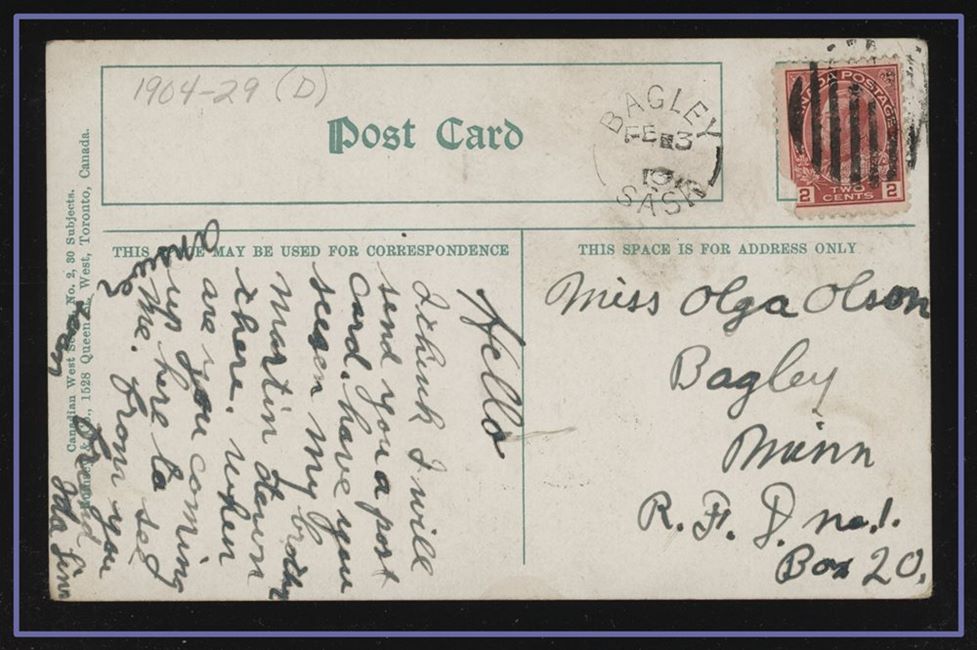 1904-29 (D)
Post Card
BAGLEY
FE 3
SASK
CANADA POSTAGE
2 TWO CENTS 2
THIS SPACE MAY BE USED FOR CORRESPONDENCE
THIS SPACE IS FOR ADDRESS ONLY
Canadian West Series, No. 2, 30 Subjects.
Co., 1528 Queen St. West, Toronto, Canada.
Hello
I think I will
send you a post
card. have you
seeen my brother
martin down
there. when
are you coming
up here to see
me. from you
Friend
Ida Linn
answer
soon
Miss Olga Olson
Bagley
Minn
R. F. D. no. 1.
Box 20.